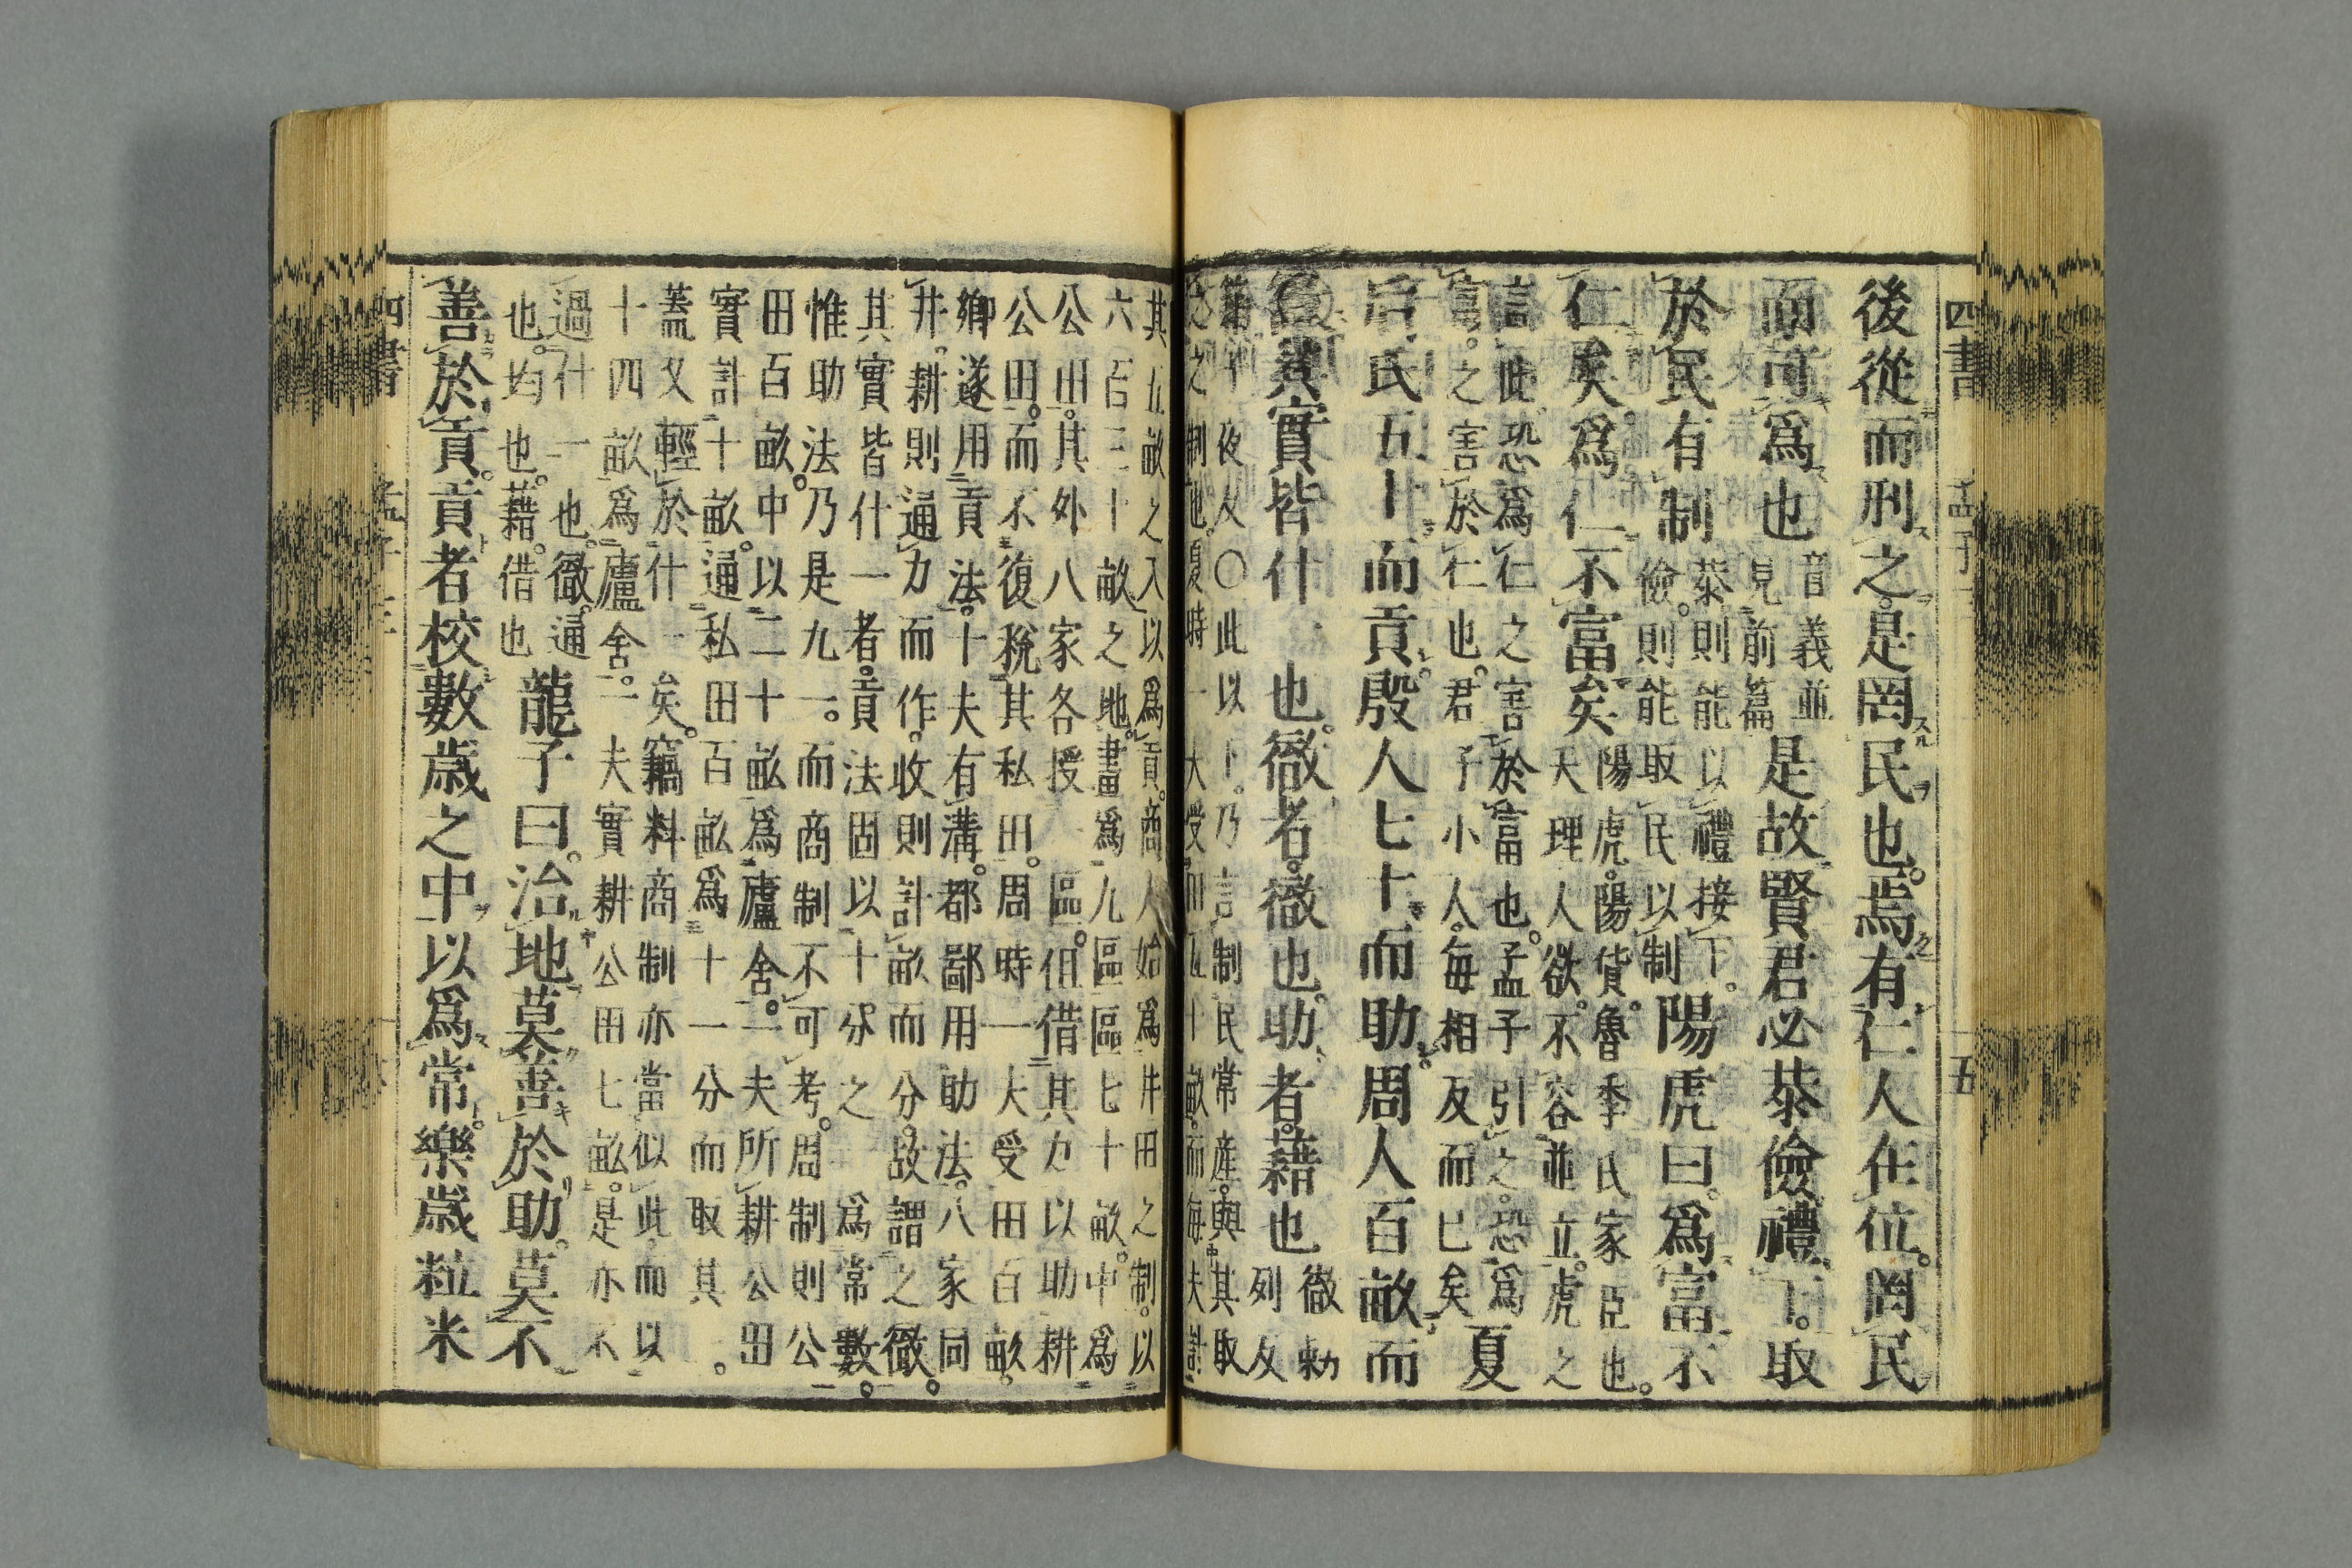 四書 孟子三 五
後從而刑之是罔民也。焉有仁人在位。罔民
而可爲也
音義並
見前篇
是故賢君必恭儉禮下。取
於民有制
恭則能以禮接下。
儉。則能取民以制
陽虎曰。爲富不
仁矣。爲仁不富矣
陽虎。陽貨。魯季氏家臣也。
天理人欲。不容並立。虎之
言此。恐爲仁之害於富也。孟子引之。恐爲
富。之害於仁也。君子小人。每相反而已矣
夏
后氏五十而貢。殷人七十而助。周人百畝而
徹。其實皆什一也。徹者。徹也。助者。藉也
徹勅
列反
藉子夜反〇此以下。乃言制民常產。與其取
之之制也。夏時一夫受田五十畝。而每夫計
其五畝之入以爲貢。商人始爲井田之制。以
六百三十畝之地。畫爲九區區七十畝。中爲
公田。其外八家各授一區。但借其力以助耕
公田。而不復稅其私田。周時一夫受田百畝。
鄉遂用貢法。十夫有溝。都鄙用助法。八家同
井。耕則通力而作。收則計畝而分。故謂之徹。
其實皆什一者。貢法固以十分之一爲常數。
惟助法乃是九一。而商制不可考。周制則公
田百畝。中以二十畝爲廬舍。一夫所耕公田
實計十畝。通私田百畝爲十一分而取其一。
蓋又輕於什一矣。竊料商制亦當似此。而以
十四畝爲廬舍。一夫實耕公田七畝。是亦不
過什一也。徹。通
也。均也。藉。借也
龍子曰。治地莫善於助。莫不
善於貢。貢者校數歲之中以爲常。樂歲粒米
四書 孟子三